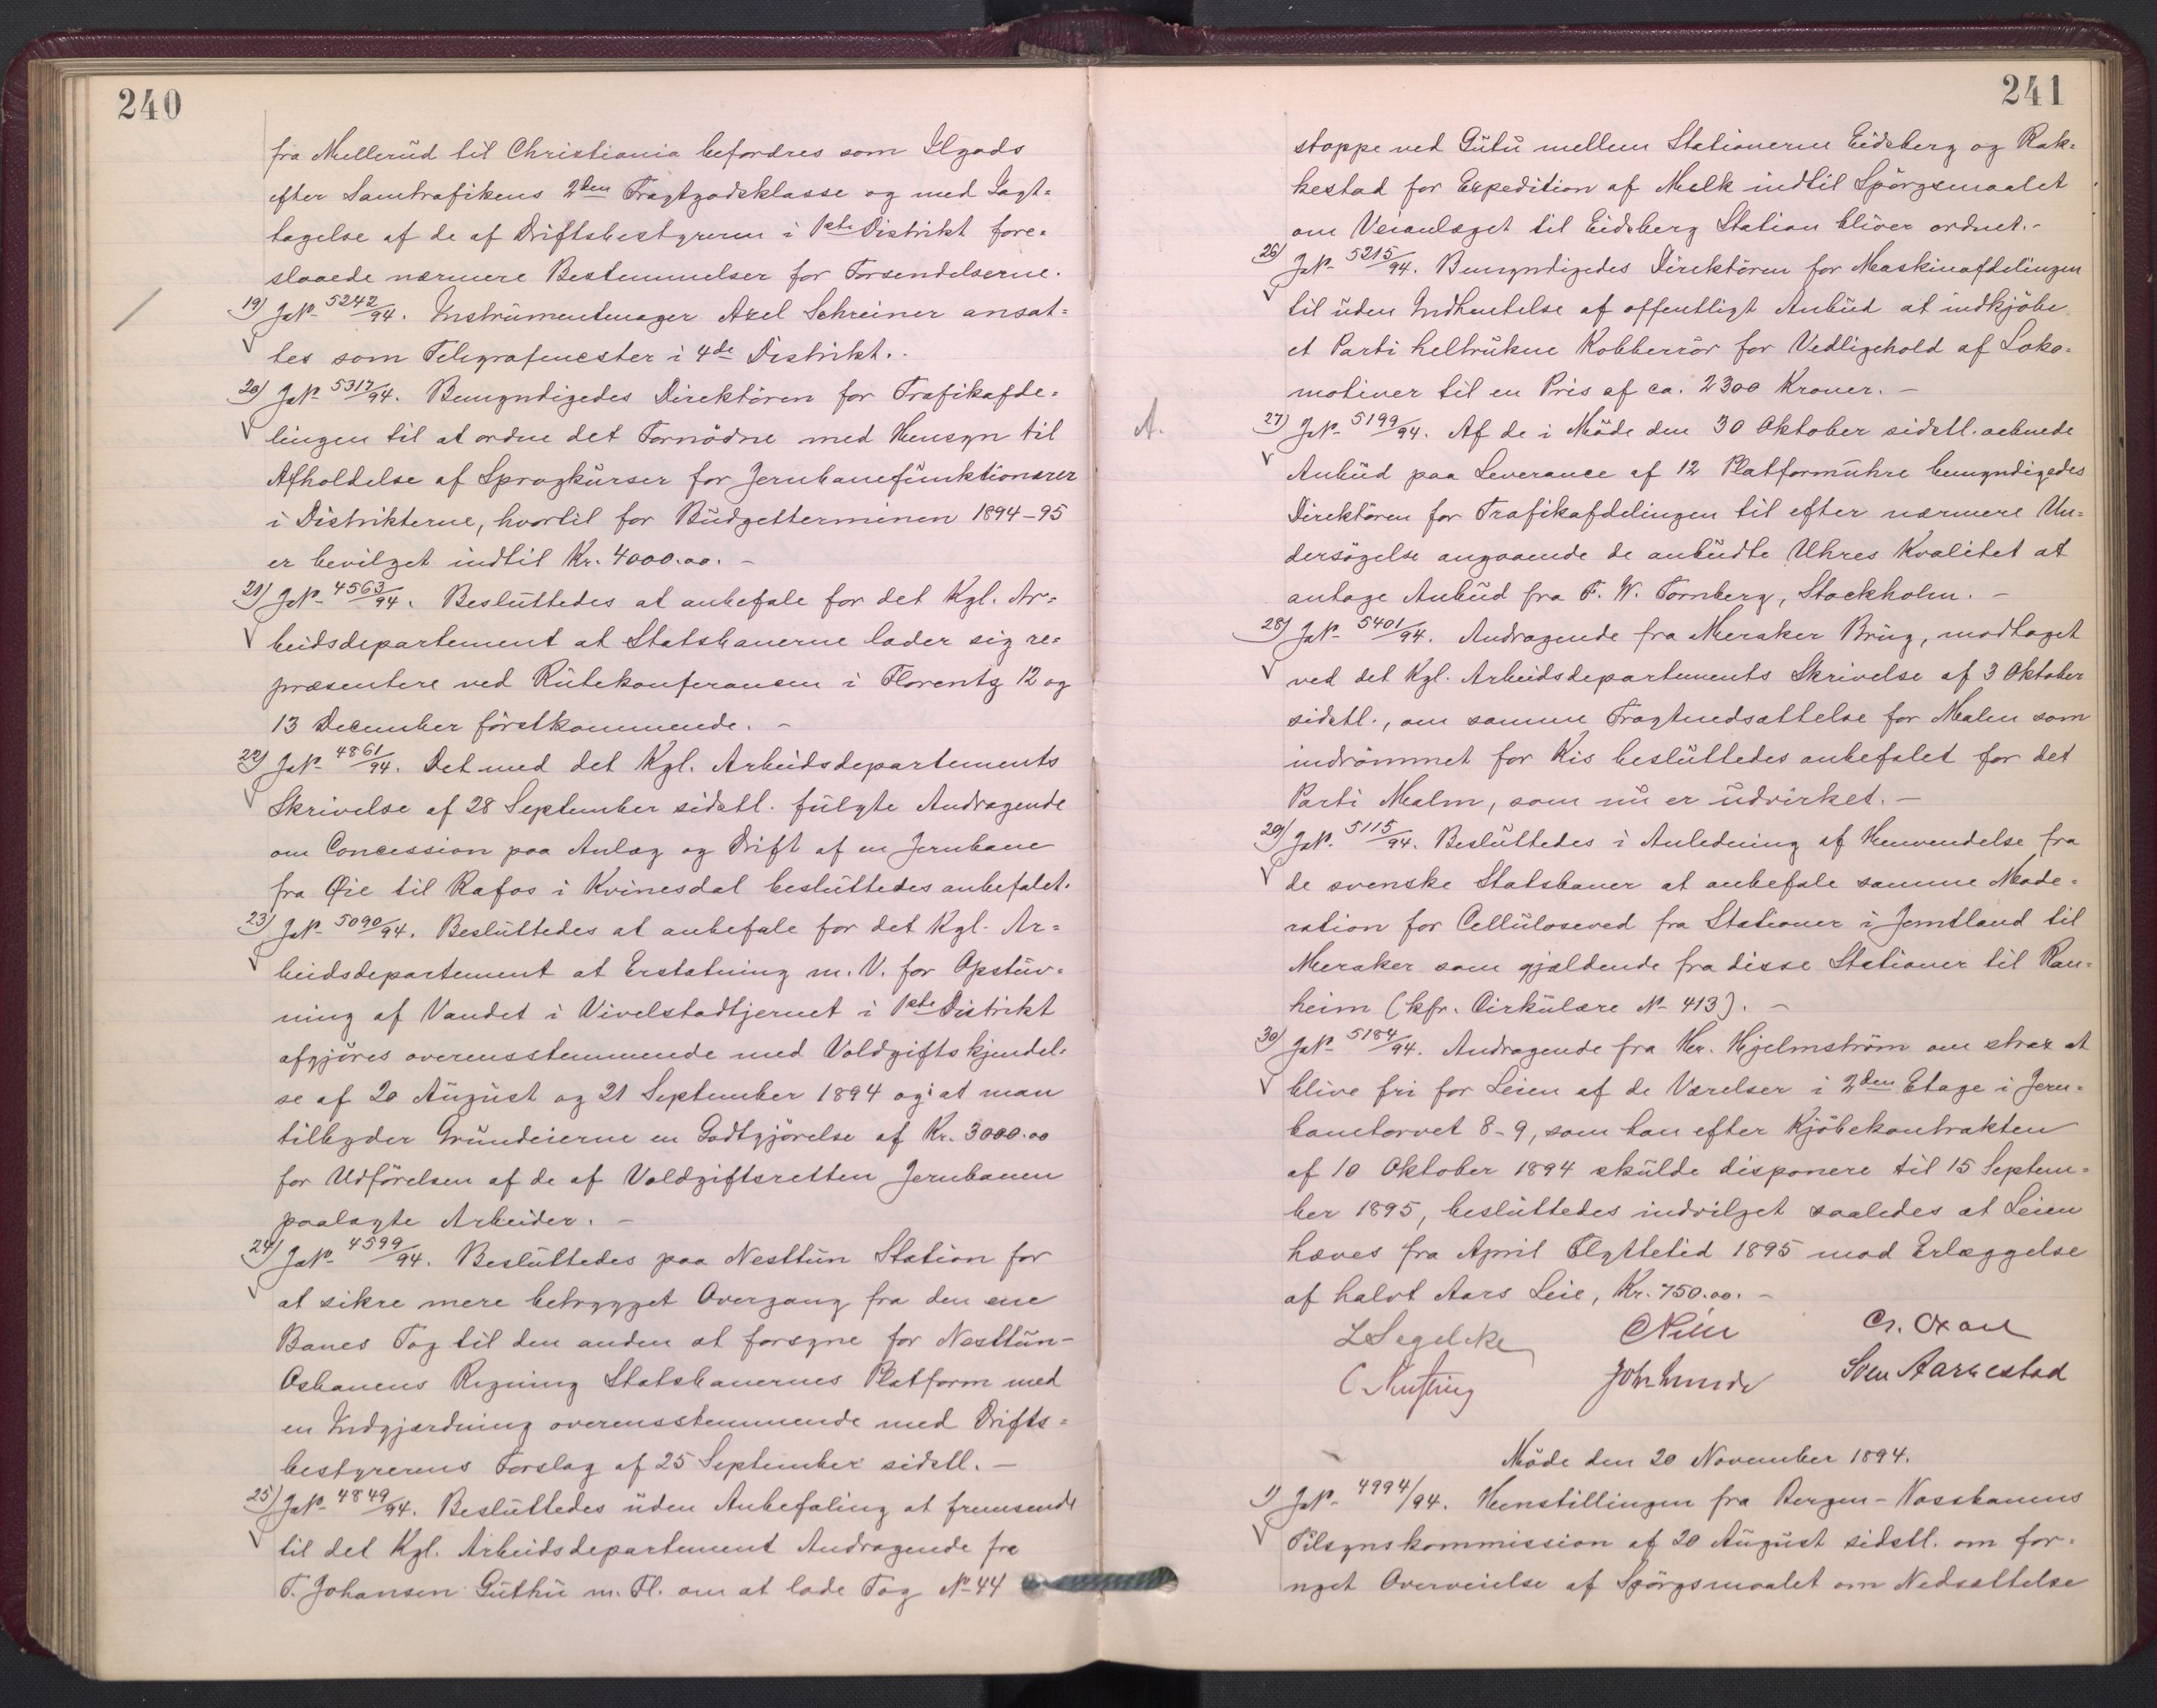 240
fra Mellerud til Christiania befordres som Ilgods
efter Samtrafikens 2den Fragtgodsklasse og med Iagt=
tagelse af de af Driftsbestyreren i 1ste Distrikt fore=
slaaede nærmere Bestemmelser for Forsendelserne.
19) JN- 5242/94. Instrumentmager Axel Schreiner ansat=
tes som Telegrafmester i 4de Distrikt.-
20) JN- 5317/94. Bemyndigedes Direktören for Trafikafde=
lingen til at ordne det Fornödne med Hensyn til
Afholdelse af Sprogkurser for Jernbanefunktionærer
i Distrikterne, hvortil for Budgetterminen 1894-95
er bevilget indtil Kr. 4000.00. -
21) JN- 4563/94. Besluttedes at anbefale for det Kgl. Ar=
beidsdepartement at Statsbanerne lader sig re=
præsentere ved Rutekonferancen i Florentz 12 og
13 December förstkommende. -
22) JN- 4861/94. Det med det Kgl. Arbeidsdepartements
Skrivelse af 28 September sidstl. fulgte Andragende
om Concession paa Anlæg og Drift af en Jernbane
fra Øie til Rafos i Kvinesdal besluttedes anbefalet.
23) JN- 5090/94. Besluttedes at anbefale for det Kgl. Ar=
beidsdepartement at Erstatning m. V. for Opstuv=
ning af Vandet i Vivelstadtjernet i 1ste Distrikt
afgjöres overensstemmende med Voldgiftskjendel=
se af 20 August og 21 September 1894 og at man
tilbyder Grundeierne en Godtgjörelse af Kr. 3000.00
for Udförelsen af de af Voldgiftsretten Jernbanen
paalagte Arbeider. -
24) JN- 4599/94. Besluttedes paa Nesttun Station for
at sikre mere betrygget Overgang fra den ene
Banes Tog til den anden at forsyne for Nesttun-
Osbanens Regning Statsbanernes Platform med
en Indgjærdning overensstemmende med Drifts=
bestyrerens Forslag af 25 September sidstl. -
25) JN- 4849/94. Besluttedes uden Anbefaling at fremsende
til det Kgl. Arbeidsdepartement Andragende fra
T. Johansen Guthu m. Fl. om at lade Tog No 44
241
stoppe ved Gutu mellem Stationerne Eidsberg og Rak=
kestad for Expedition af Melk indtil Spörgsmaalet
om Veianlæget til Eidsberg Station bliver ordnet.-
26) JN- 5215/94. Bemyndigedes Direktören for Maskinafdelingen
til uden Indhentelse af offentligt Anbud at indkjöbe
et Parti heltrukne Kobberrör for Vedligehold af Loko=
motiver til en Pris af ca. 2300 Kroner. -
A.
27) JN- 5199/94. Af de i Möde den 30 Oktober sidstl. aabnede
Anbud paa Leverance af 12 Platformuhre bemyndigedes
Direktören for Trafikafdelingen til efter nærmere Un=
dersögelse angaaende de anbudte Uhres Kvalitet at
antage Anbud fra F. W. Tornberg, Stockholm. -
28) JN- 5401/94. Andragende fra Meraker Brug, modtaget
ved det Kgl. Arbeidsdepartements Skrivelse af 3 Oktober
sidstl., om samme Fragtnedsættelse for Malm som
indrömmet for Kis besluttedes anbefalet for det
Parti Malm, som nu er udvirket. -
29) JN- 5115/94. Besluttedes i Anledning af Henvendelse fra
de svenske Statsbaner at anbefale samme Mode=
ration for Celluloseved fra Stationer i Jemtland til
Meraker som gjældende fra disse Stationer til Ran=
heim (kfr. Cirkulære No 413). -
30) JN- 5184/94. Andragende fra Hr. Hjelmström om strax at
blive fri for Leien af de Værelser i 2den Etage i Jern=
banetorvet 8-9, som han efter Kjöbekontrakten
af 10 Oktober 1894 skulde disponere til 15 Septem=
ber 1895, besluttedes indvilget saaledes at Leien
hæves fra April Flyttetid 1895 mod Erlæggelse
af halvt Aars Leie, Kr. 750.00. -
L Segelcke
Sven Aarrestad
Möde den 20 November 1894.
1) JN- 4994/94. Henstillingen fra Bergen-Vossbanens
Tilsynskommission af 20 August sidstl. om for=
nyet Overveielse af Spörgsmaalet om Nedsættelse